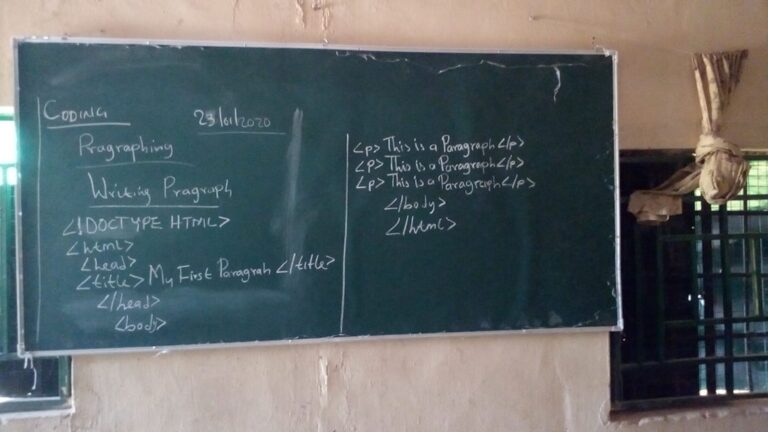 CODING 23/01/2020
Pragraphing
Writing Pragraph
<!DOCTYPE HTML>
<html>
<head>
<title> My First Paragrah </title>
</head>
<body>
<p> This is a Paragraph </p>
<p> This is a Paragraph </p>
<p> This is a Paragraph </p>
</body>
</html>